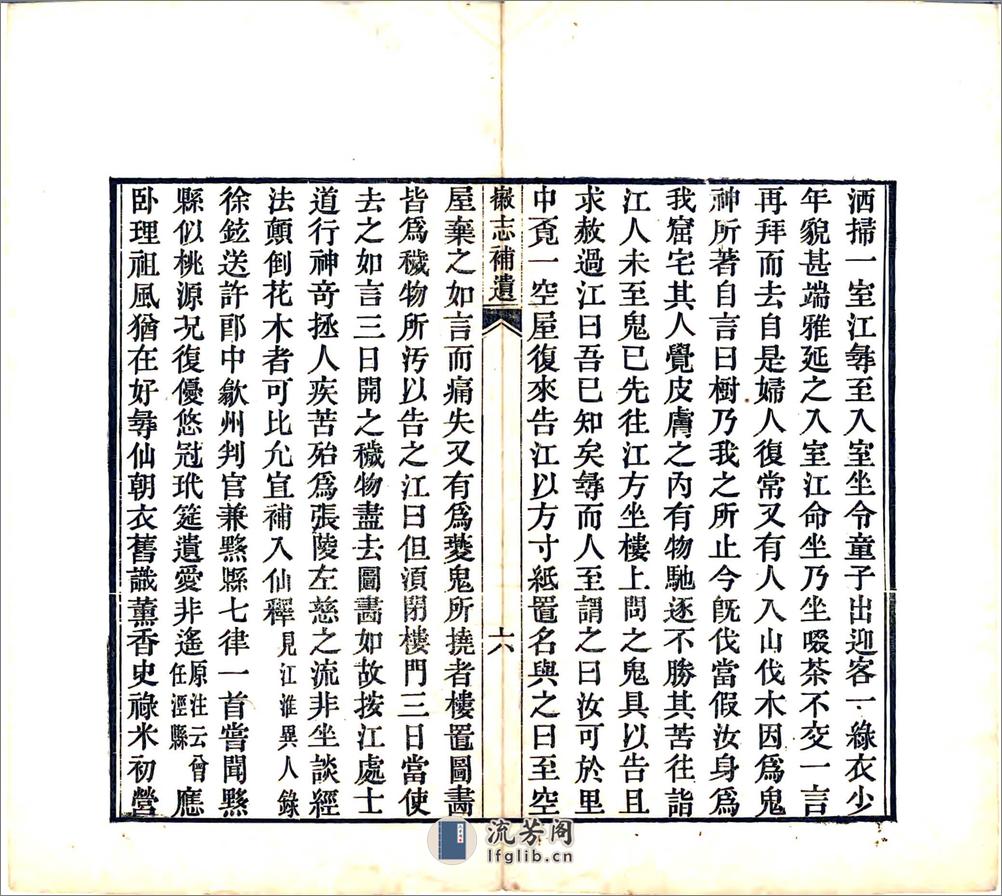 洒掃一室江尋至入室坐令童子出迎客一綠衣少
年貌甚端雅延之入室江命坐乃坐啜茶不交一言
再拜而去自是婦人復常又有人入山伐木因爲鬼
神所著自言曰樹乃我之所止今旣伐當假汝身爲
我窟宅其人覺皮膚之內有物馳逐不勝其苦往詣
江人未至鬼已先往江方坐樓上問之鬼具以告且
求赦過江曰吾已知矣尋而人至謂之曰汝可於里
中覔一空屋復來告江以方寸紙置名與之曰至空
徽志補遺
六
屋棄之如言而痛失又有爲夔鬼所撓者樓置圖畵
皆爲穢物所汚以告之江曰但湏閉樓門三日當使
去之如言三日開之穢物盡去圖畵如故按江處士
道行神奇拯人疾苦殆爲張陵左慈之流非坐談經
法顛倒花木者可比允宜補入仙釋見江淮異人錄
徐鉉送許郎中歙州判官兼黟縣七律一首嘗聞黟
縣似桃源况復優悠冠玳筵遺愛非遙原注云曾任涇縣應
卧理祖風猶在好尋仙朝衣舊識薰香史祿米初營
流芳阁
lfglib.cn